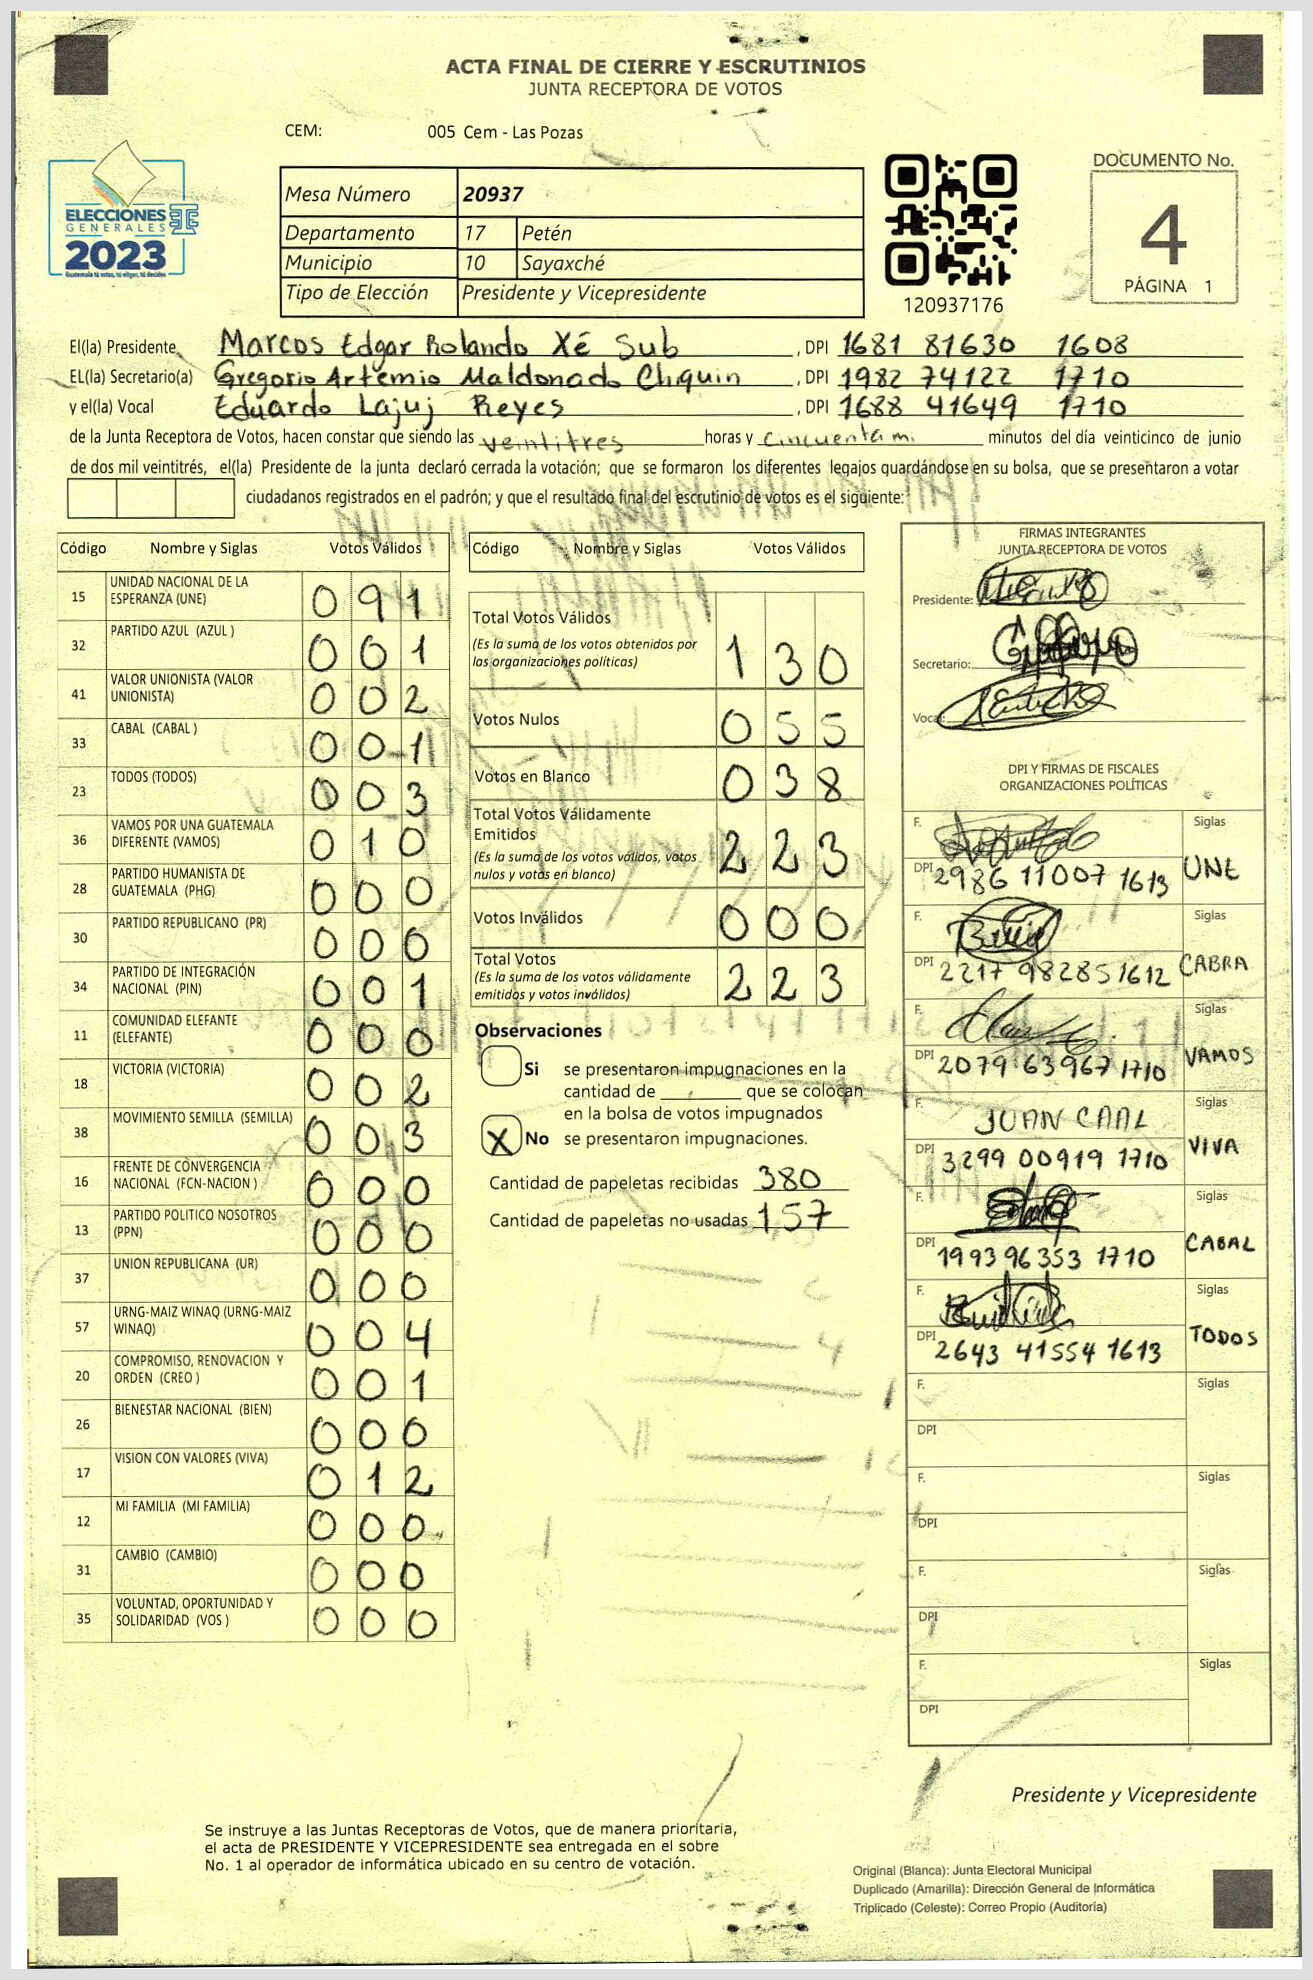 ACTA FINAL DE CIERRE Y ESCRUTINIOS
JUNTA RECEPTORA DE VOTOS
CEM: 005 Cem - Las Pozas
ELECCIONES
GENERALES
2023
Guatemala tú votas, tú eliges, tú decides
Mesa Número 20937
Departamento 17 Petén
Municipio 10 Sayaxché
Tipo de Elección Presidente y Vicepresidente
120937176
DOCUMENTO No.
4
PÁGINA 1
El(la) Presidente Marcos Edgar Rolando Xé Sub , DPI 1681 81630 1608
EL(la) Secretario(a) Gregorio Artemio Maldonado Chquin , DPI 1982 74122 1710
y el(la) Vocal Eduardo Lajuj Reyes , DPI 1688 41649 1710
de la Junta Receptora de Votos, hacen constar que siendo las veintitres horas y cincuenta mi minutos del día veinticinco de junio
de dos mil veintitrés, el(la) Presidente de la junta declaró cerrada la votación; que se formaron los diferentes legajos guardándose en su bolsa, que se presentaron a votar
ciudadanos registrados en el padrón; y que el resultado final del escrutinio de votos es el siguiente:
Código Nombre y Siglas Votos Válidos
15 UNIDAD NACIONAL DE LA ESPERANZA (UNE) 091
32 PARTIDO AZUL (AZUL ) 001
41 VALOR UNIONISTA (VALOR UNIONISTA) 002
33 CABAL (CABAL ) 00-1
23 TODOS (TODOS) 003
36 VAMOS POR UNA GUATEMALA DIFERENTE (VAMOS) 010
28 PARTIDO HUMANISTA DE GUATEMALA (PHG) 000
30 PARTIDO REPUBLICANO (PR) 000
34 PARTIDO DE INTEGRACIÓN NACIONAL (PIN) 001
11 COMUNIDAD ELEFANTE (ELEFANTE) 000
18 VICTORIA (VICTORIA) 002
38 MOVIMIENTO SEMILLA (SEMILLA) 003
16 FRENTE DE CONVERGENCIA NACIONAL (FCN-NACION ) 000
13 PARTIDO POLITICO NOSOTROS (PPN) 000
37 UNION REPUBLICANA (UR) 000
57 URNG-MAIZ WINAQ (URNG-MAIZ WINAQ) 004
20 COMPROMISO, RENOVACION Y ORDEN (CREO ) 001
26 BIENESTAR NACIONAL (BIEN) 000
17 VISION CON VALORES (VIVA) 012
12 MI FAMILIA (MI FAMILIA) 000
31 CAMBIO (CAMBIO) 000
35 VOLUNTAD, OPORTUNIDAD Y SOLIDARIDAD (VOS ) 000
Código Nombre y Siglas Votos Válidos
Total Votos Válidos 130
(Es la suma de los votos obtenidos por
las organizaciones políticas)
Votos Nulos 055
Votos en Blanco 038
Total Votos Válidamente
Emitidos 223
(Es la suma de los votos válidos, votos
nulos y votos en blanco)
Votos Inválidos 000
Total Votos 223
(Es la suma de los votos válidamente
emitidos y votos inválidos)
Observaciones
Si se presentaron impugnaciones en la
cantidad de ______ que se colocan
en la bolsa de votos impugnados
X No se presentaron impugnaciones.
Cantidad de papeletas recibidas 380
Cantidad de papeletas no usadas 157
FIRMAS INTEGRANTES
JUNTA RECEPTORA DE VOTOS
Presidente:
Secretario:
Vocal:
DPI Y FIRMAS DE FISCALES
ORGANIZACIONES POLÍTICAS
F. Siglas
DPI 2986 11007 1613 UNE
F. Siglas
DPI 2217 98285 1612 CABRA
F. Siglas
DPI 2079 63967 1710 VAMOS
F. JUAN CAAL Siglas
DPI 3299 00919 1710 VIVA
F. Siglas
DPI 1993 96353 1710 CABAL
F. Siglas
DPI 2643 41554 1613 TODOS
F. Siglas
DPI
F. Siglas
DPI
F. Siglas
DPI
F. Siglas
DPI
Presidente y Vicepresidente
Se instruye a las Juntas Receptoras de Votos, que de manera prioritaria,
el acta de PRESIDENTE Y VICEPRESIDENTE sea entregada en el sobre
No. 1 al operador de informática ubicado en su centro de votación.
Original (Blanca): Junta Electoral Municipal
Duplicado (Amarilla): Dirección General de Informática
Triplicado (Celeste): Correo Propio (Auditoría)